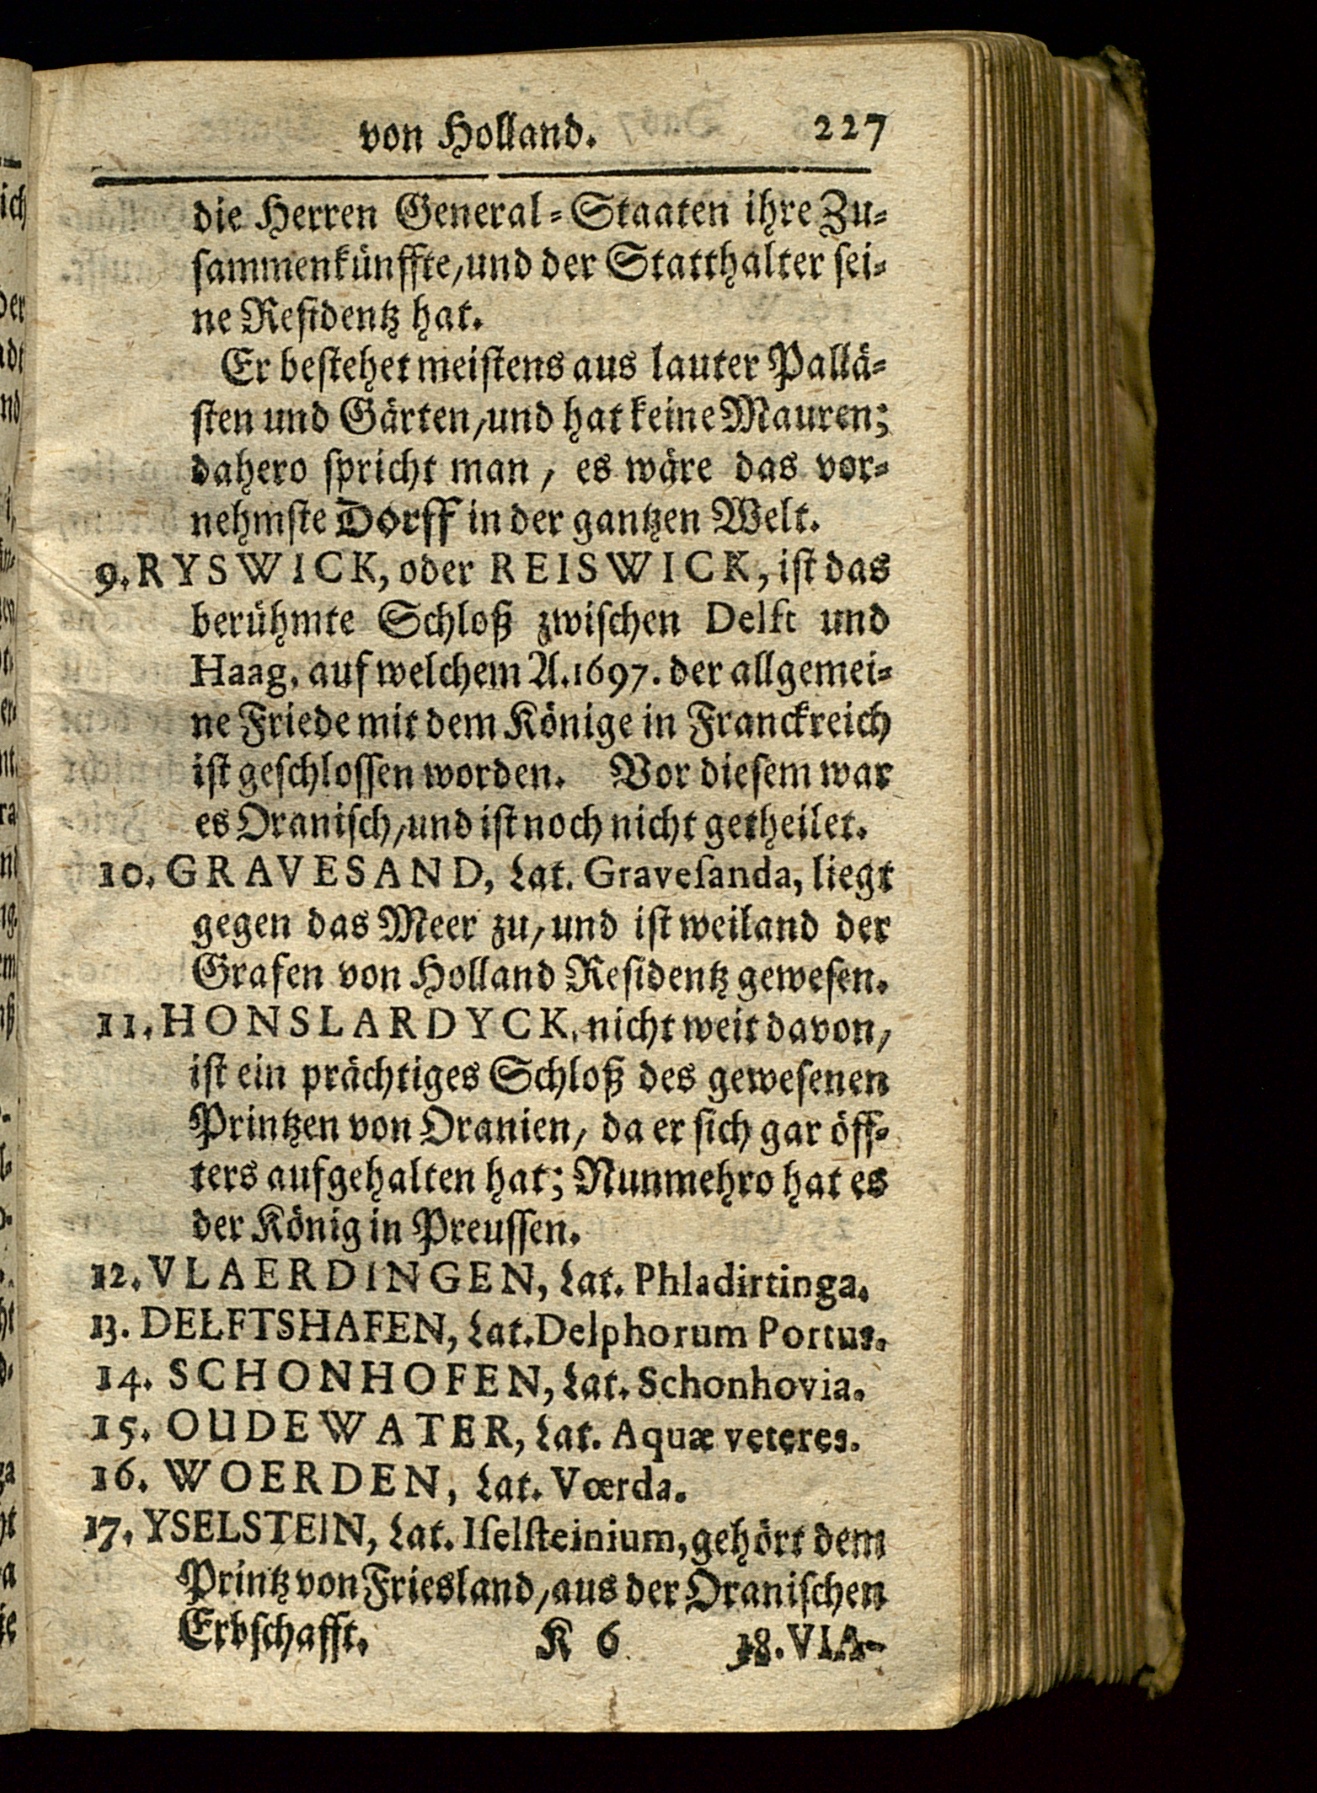 von Holland. 227
die Herren General-Staaten ihre Zu-
sammenkünffte/und der Statthalter sei-
ne Residentz hat.
Er bestehet meistens aus lauter Pallä-
sten und Gärten/und hat keine Mauren;
dahero spricht man / es wäre das vor-
nehmste Dorff in der gantzen Welt.
9. RYSWICK, oder REISWICK, ist das
berühmte Schloß zwischen Delft und
Haag, auf welchem A. 1697. der allgemei-
ne Friede mit dem Könige in Franckreich
ist geschlossen worden. Vor diesem war
es Oranisch/und ist noch nicht getheilet.
10. GRAVESAND, Lat. Gravesanda, liegt
gegen das Meer zu/und ist weiland der
Grafen von Holland Residentz gewesen.
11. HONSLARDYCK, nicht weit davon/
ist ein prächtiges Schloß des gewesenen
Printzen von Oranien/ da er sich gar öff-
ters aufgehalten hat; Nunmehro hat es
der König in Preussen.
12. VLAERDINGEN, Lat. Phladirtinga.
13. DELFTSHAFEN, Lat. Delphorum Portus.
14. SCHONHOFEN, Lat. Schonhovia.
15. OUDEWATER, Lat. Aquæ veteres.
16. WOERDEN, Lat. Vœrda.
17. YSELSTEIN, Lat. Iselsteinium, gehört dem
Printz von Friesland/aus der Oranischen
Erbschafft. K 6 18. VIA-